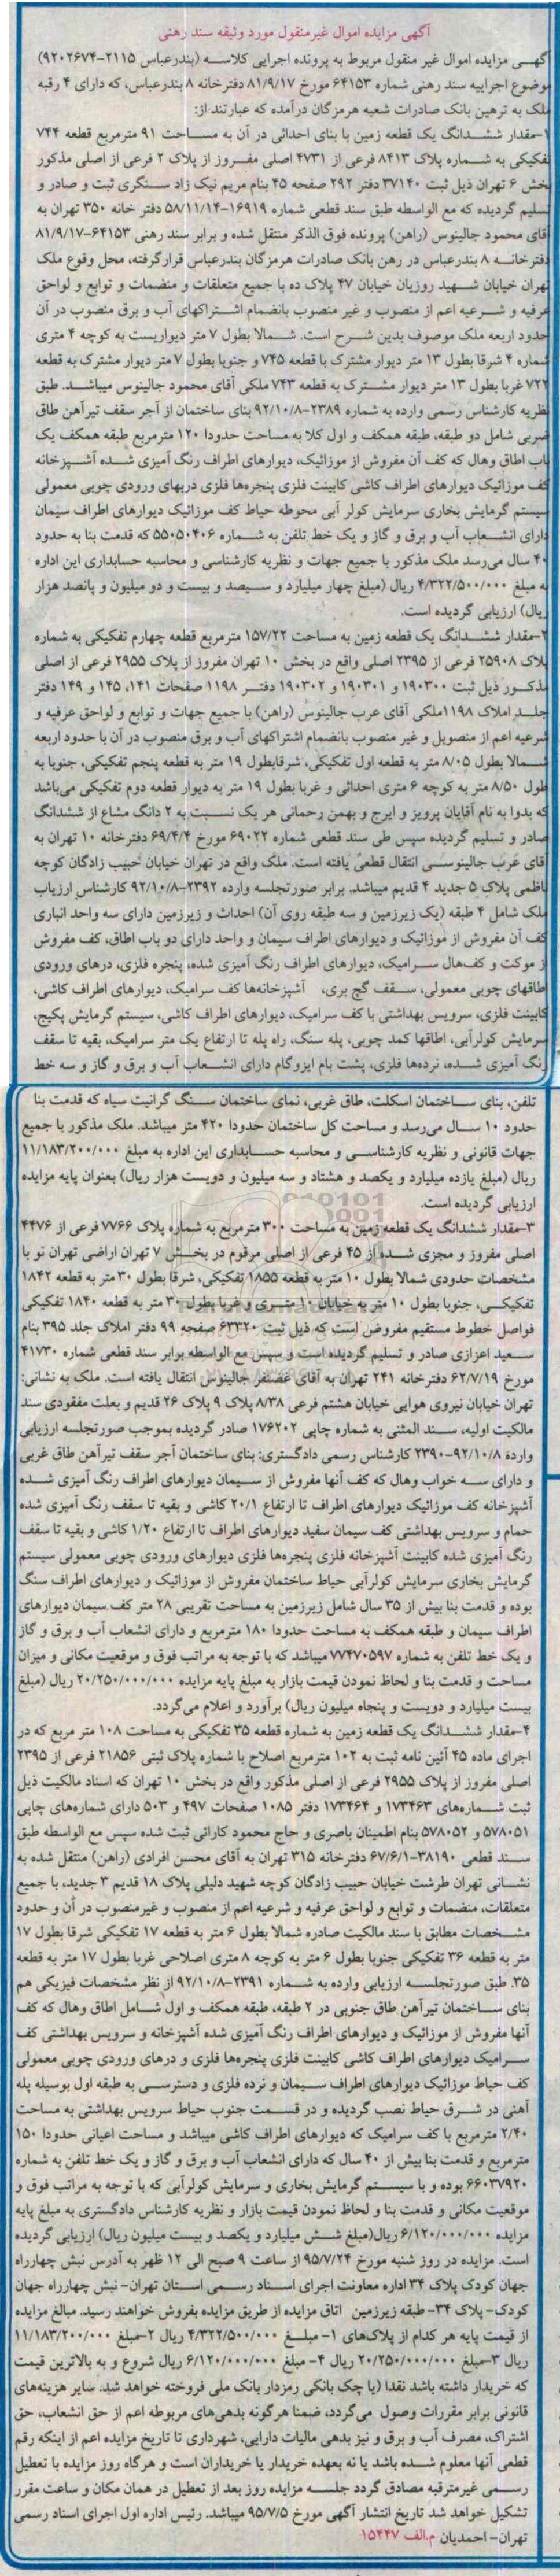 آگهی مزایده اموال غیرمنقول مورد وثیقه سند رهنی
آگهـی مزایده اموال غیر منقول مربوط به پرونده اجرایی کلاسـه (بندرعباس ۲۱۱۵-۹۲۰۲۶۷۴)
موضوع اجراییه سند رهنی شماره ۶۴۱۵۳ مورخ ۸۱/۹/۱۷ دفترخانه ۸ بندرعباس، که دارای ۴ رقبه
ملک به ترهین بانک صادرات شعبه هرمزگان درآمده که عبارتند از:
۱-مقدار ششـدانگ یک قطعه زمین با بنای احداثی در آن به مسـاحت ۹۱ مترمربع قطعه ۷۴۴
تفکیکی به شـماره پلاک ۸۴۱۳ فرعی از ۴۷۳۱ اصلی مفـروز از پلاک ۲ فرعی از اصلی مذکور
بخش ۶ تهران ذیل ثبت ۳۷۱۴۰ دفتر ۲۹۲ صفحه ۴۵ بنام مریم نیک زاد سـنگری ثبت و صادر و
تسلیم گردیده که مع الواسطه طبق سند قطعی شماره ۱۶۹۱۹-۵۸/۱۱/۱۴ دفتر خانه ۳۵۰ تهران به
آقای محمود جالینوس (راهن) پرونده فوق الذکر منتقل شده و برابر سند رهنی ۶۴۱۵۳-۸۱/۹/۱۷
دفترخانـه ۸ بندرعباس در رهن بانک صادرات هرمزگان بندرعباس قرارگرفته، محل وقوع ملک
تهران خیابان شـهید روزیان خیابان ۴۷ پلاک ده با جمیع متعلقات و منضمات و توابع و لواحق
عرفیه و شـرعیه اعم از منصوب و غیر منصوب بانضمام اشـتراکهای آب و برق منصوب در آن
حدود اربعه ملک موصوف بدین شـرح است. شـمالا بطول ۷ متر دیواریست به کوچه ۴ متری
شماره ۴ شرقا بطول ۱۳ متر دیوار مشترک با قطعه ۷۴۵ و جنوبا بطول ۷ متر دیوار مشترک به قطعه
۷۲۲ غربا بطول ۱۳ متر دیوار مشـترک به قطعه ۷۴۳ ملکی آقای محمود جالینوس میباشـد. طبق
نظریه کارشناس رسمی وارده به شماره ۲۳۸۹-۹۲/۱۰/۸ بنای ساختمان از آجر سقف تیرآهن طاق
ضربی شامل دو طبقه، طبقه همکف و اول کلا به مساحت حدودا ۱۲۰ مترمربع طبقه همکف یک
باب اطاق وهال که کف آن مفروش از موزائیک، دیوارهای اطراف رنگ آمیزی شـده آشـپزخانه
کف موزائیک دیوارهای اطراف کاشی کابینت فلزی پنجره‌ها فلزی دربهای ورودی چوبی معمولی
سیستم گرمایش بخاری سرمایش کولر آبی محوطه حیاط کف موزائیک دیوارهای اطراف سیمان
دارای انشـعاب آب و برق و گاز و یک خط تلفن به شـماره ۵۵۰۵۰۴۰۶ که قدمت بنا به حدود
۴۰ سال می‌رسد ملک مذکور با جمیع جهات و نظریه کارشناسی و محاسبه حسابداری این اداره
به مبلغ ۴/۳۲۲/۵۰۰/۰۰۰ ریال (مبلغ چهار میلیارد و سـیصد و بیست و دو میلیون و پانصد هزار
ریال) ارزیابی گردیده است.
۲-مقدار ششـدانگ یک قطعه زمین به مساحت ۱۵۷/۲۲ مترمربع قطعه چهارم تفکیکی به شماره
پلاک ۲۵۹۰۸ فرعی از ۲۳۹۵ اصلی واقع در بخش ۱۰ تهران مفروز از پلاک ۲۹۵۵ فرعی از اصلی
مذکـور ذیل ثبت ۱۹۰۳۰۰ و ۱۹۰۳۰۱ و ۱۹۰۳۰۲ دفتـر ۱۱۹۸ صفحات ۱۴۱، ۱۴۵ و ۱۴۹ دفتر
جلـد املاک ۱۱۹۸ملکی آقای عرب جالینوس (راهن) با جمیع جهات و توابع و لواحق عرفیه و
شرعیه اعم از منصوبل و غیر منصوب بانضمام اشتراکهای آب و برق منصوب در آن با حدود اربعه
شـمالا بطول ۸/۰۵ متر به قطعه اول تفکیکی، شرقابطول ۱۹ متر به قطعه پنجم تفکیکی، جنوبا به
طول ۸/۵۰ متر به کوچه ۶ متری احداثی و غربا بطول ۱۹ متر به دیوار قطعه دوم تفکیکی می‌باشد
که بدوا به نام آقایان پرویز و ایرج و بهمن رحمانی هر یک نسـبت به ۲ دانگ مشاع از ششدانگ
صادر و تسلیم گردیده سپس طی سند قطعی شماره ۶۹۰۲۲ مورخ ۶۹/۴/۴ دفترخانه ۱۰ تهران به
آقای عرب جالینوسـی انتقال قطعی یافته است. ملک واقع در تهران خیابان حبیب زادگان کوچه
ناظمی پلاک ۵ جدید ۴ قدیم میباشد. برابر صورتجلسه وارده ۲۳۹۲-۹۲/۱۰/۸ کارشناس ارزیاب
ملک شامل ۴ طبقه (یک زیرزمین و سه طبقه روی آن) احداث و زیرزمین دارای سه واحد انباری
کف آن مفروش از موزائیک و دیوارهای اطراف سیمان و واحد دارای دو باب اطاق، کف مفروش
از موکت و کف‌هال سـرامیک، دیوارهای اطراف رنگ آمیزی شده، پنجره فلزی، درهای ورودی
طاقهای چوبی معمولی، سـقف گچ بری، آشپزخانه‌ها کف سرامیک، دیوارهای اطراف کاشی،
کابینت فلزی، سرویس بهداشتی با کف سرامیک، دیوارهای اطراف کاشی، سیستم گرمایش پکیج،
سرمایش کولرآبی، اطاقها کمد چوبی، پله سنگ، راه پله تا ارتفاع یک متر سرامیک، بقیه تا سقف
رنگ آمیزی شـده، نرده‌ها فلزی، پشت بام ایزوگام دارای انشـعاب آب و برق و گاز و سه خط
تلفن، بنای ساختمان اسکلت، طاق غربی، نمای ساختمان سـنگ گرانیت سیاه که قدمت بنا
حدود ۱۰ سـال می‌رسد و مساحت کل ساختمان حدودا ۴۲۰ متر میباشد. ملک مذکور با جمیع
جهات قانونی و نظریه کارشناسـی و محاسبه حسـابداری این اداره به مبلغ ۱۱/۱۸۳/۲۰۰/۰۰۰
ریال (مبلغ یازده میلیارد و یکصد و هشتاد و سه میلیون و دویست هزار ریال) بعنوان پایه مزایده
ارزیابی گردیده است.
۳-مقدار ششدانگ یک قطعه زمین به مساحت ۳۰۰ مترمربع به شماره پلاک ۷۷۶۶ فرعی از ۴۴۷۶
اصلی مفروز و مجزی شـده از ۴۵ فرعی از اصلی مرقوم در بخـش ۷ تهران اراضی تهران نو با
مشخصات حدودی شمالا بطول ۱۰ متر به قطعه ۱۸۵۵ تفکیکی، شرقا بطول ۳۰ متر به قطعه ۱۸۴۲
تفکیکـی، جنوبا بطول ۱۰ متر به خیابان ۱۰ متـری و غربا بطول ۳۰ متر به قطعه ۱۸۴۰ تفکیکی
فواصل خطوط مستقیم مفروض است که ذیل ثبت ۶۳۳۲۰ صفحه ۹۹ دفتر املاک جلد ۳۹۵ بنام
سـعید اعزازی صادر و تسلیم گردیده است و سپس مع الواسطه برابر سند قطعی شماره ۴۱۷۳۰
مورخ ۶۲/۷/۱۹ دفترخانه ۲۴۱ تهران به آقای غضنفر جالینوس انتقال یافته است. ملک به نشانی:
تهران خیابان نیروی هوایی خیابان هشتم فرعی ۸/۳۸ پلاک ۹ پلاک ۲۶ قدیم و بعلت مفقودی سند
مالکیت اولیه، سـند المثنی به شماره چاپی ۱۷۶۲۰۲ صادر گردیده بموجب صورتجلسه ارزیابی
وارده ۹۲/۱۰/۸-۲۳۹۰ کارشناس رسمی دادگستری: بنای ساختمان آجر سقف تیرآهن طاق غربی
و دارای سـه خواب وهال که کف آنها مفروش از سـیمان دیوارهای اطراف رنگ آمیزی شـده
آشپزخانه کف موزائیک دیوارهای اطراف تا ارتفاع ۲۰/۱ کاشی و بقیه تا سقف رنگ آمیزی شده
حمام و سرویس بهداشتی کف سیمان سفید دیوارهای اطراف تا ارتفاع ۱/۲۰ کاشی و بقیه تا سقف
رنگ آمیزی شده کابینت آشپزخانه فلزی پنجره‌ها فلزی دیوارهای ورودی چوبی معمولی سیستم
گرمایش بخاری سرمایش کولرآبی حیاط ساختمان مفروش از موزائیک و دیوارهای اطراف سنگ
بوده و قدمت بنا بیش از ۳۵ سال شامل زیرزمین به مساحت تقریبی ۲۸ متر کف سیمان دیوارهای
اطراف سیمان و طبقه همکف به مساحت حدودا ۱۸۰ مترمربع و دارای انشعاب آب و برق و گاز
و یک خط تلفن به شماره ۷۷۴۷۰۵۹۷ میباشد که با توجه به مراتب فوق و موقعیت مکانی و میزان
مساحت و قدمت بنا و لحاظ نمودن قیمت بازار به مبلغ پایه مزایده ۲۰/۲۵۰/۰۰۰/۰۰۰ ریال (مبلغ
بیست میلیارد و دویست و پنجاه میلیون ریال) برآورد و اعلام می‌گردد.
۴-مقدار ششـدانگ یک قطعه زمین به شماره قطعه ۳۵ تفکیکی به مساحت ۱۰۸ متر مربع که در
اجرای ماده ۴۵ آئین نامه ثبت به ۱۰۲ مترمربع اصلاح با شماره پلاک ثبتی ۲۱۸۵۶ فرعی از ۲۳۹۵
اصلی مفروز از پلاک ۲۹۵۵ فرعی از اصلی مذکور واقع در بخش ۱۰ تهران که اسناد مالکیت ذیل
ثبت شـماره‌های ۱۷۳۴۶۳ و ۱۷۳۴۶۴ دفتر ۱۰۸۵ صفحات ۴۹۷ و ۵۰۳ دارای شماره‌های چاپی
۵۷۸۰۵۱ و ۵۷۸۰۵۲ بنام اطمینان باصری و حاج محمود کارانی ثبت شده سپس مع الواسطه طبق
سـند قطعی ۳۸۱۹۰-۶۷/۶/۱ دفترخانه ۳۱۵ تهران به آقای محسن افرادی (راهن) منتقل شده به
نشـانی تهران طرشت خیابان حبیب زادگان کوچه شهید دلیلی پلاک ۱۸ قدیم ۳ جدید، با جمیع
متعلقات، منضمات و توابع و لواحق عرفیه و شرعیه اعم از منصوب و غیرمنصوب در آن و حدود
مشـخصات مطابق با سند مالکیت صادره شمالا بطول ۶ متر به قطعه ۱۷ تفکیکی شرقا بطول ۱۷
متر به قطعه ۳۶ تفکیکی جنوبا بطول ۶ متر به کوچه ۸ متری اصلاحی غربا بطول ۱۷ متر به قطعه
۳۵. طبق صورتجلسـه ارزیابی وارده به شـماره ۲۳۹۱-۹۲/۱۰/۸ از نظر مشخصات فیزیکی هم
بنای سـاختمان تیرآهن طاق جنوبی در ۲ طبقه، طبقه همکف و اول شـامل اطاق وهال که کف
آنها مفروش از موزائیک و دیوارهای اطراف رنگ آمیزی شده آشپزخانه و سرویس بهداشتی کف
سـرامیک دیوارهای اطراف کاشی کابینت فلزی پنجره‌ها فلزی و درهای ورودی چوبی معمولی
کف حیاط موزائیک دیوارهای اطراف سـیمان و نرده فلزی و دسترسـی به طبقه اول بوسیله پله
آهنی در شـرق حیاط نصب گردیده و در قسـمت جنوب حیاط سرویس بهداشتی به مساحت
۲/۴۰ مترمربع با کف سرامیک که دیوارهای اطراف کاشی میباشد و مساحت اعیانی حدودا ۱۵۰
مترمربع و قدمت بنا بیش از ۴۰ سال که دارای انشعاب آب و برق و گاز و یک خط تلفن به شماره
۶۶۰۳۷۹۲۰ بوده و با سیسـتم گرمایش بخاری و سرمایش کولرآبی که با توجه به مراتب فوق و
موقعیت مکانی و قدمت بنا و لحاظ نمودن قیمت بازار و نظریه کارشناس دادگستری به مبلغ پایه
مزایده ۶/۱۲۰/۰۰۰/۰۰۰ ریال(مبلغ شـش میلیارد و یکصد و بیست میلیون ریال) ارزیابی گردیده
است. مزایده در روز شنبه مورخ ۹۵/۷/۲۴ از ساعت ۹ صبح الی ۱۲ ظهر به آدرس نبش چهارراه
جهان کودک پلاک ۳۴ اداره معاونت اجرای اسـناد رسـمی اسـتان تهران- نبش چهارراه جهان
کودک- پلاک ۳۴- طبقه زیرزمین اتاق مزایده از طریق مزایده بفروش خواهند رسید. مبالغ مزایده
از قیمت پایه هر کدام از پلاک‌های ۱- مبلـغ ۴/۳۲۲/۵۰۰/۰۰۰ ریال ۲-مبلغ ۱۱/۱۸۳/۲۰۰/۰۰۰
ریال ۳-مبلغ ۲۰/۲۵۰/۰۰۰/۰۰۰ ریال ۴- مبلغ ۶/۱۲۰/۰۰۰/۰۰۰ ریال شروع و به بالاترین قیمت
که خریدار داشته باشد نقدا (یا چک بانکی رمزدار بانک ملی فروخته خواهد شد. سایر هزینه‌های
قانونی برابر مقررات وصول می‌گردد، ضمنا هرگونه بدهی‌های مربوطه اعم از حق انشعاب، حق
اشتراک، مصرف آب و برق و نیز بدهی مالیات دارایی، شهرداری تا تاریخ مزایده اعم از اینکه رقم
قطعی آنها معلوم شـده باشد یا نه بعهده خریدار یا خریداران است و هرگاه روز مزایده با تعطیل
رسـمی غیرمترقبه مصادق گردد جلسـه مزایده روز بعد از تعطیل در همان مکان و ساعت مقرر
تشکیل خواهد شد تاریخ انتشار آگهی مورخ ۹۵/۷/۵ میباشد. رئیس اداره اول اجرای اسناد رسمی
تهران- احمدیان م.الف ۱۵۴۴۷